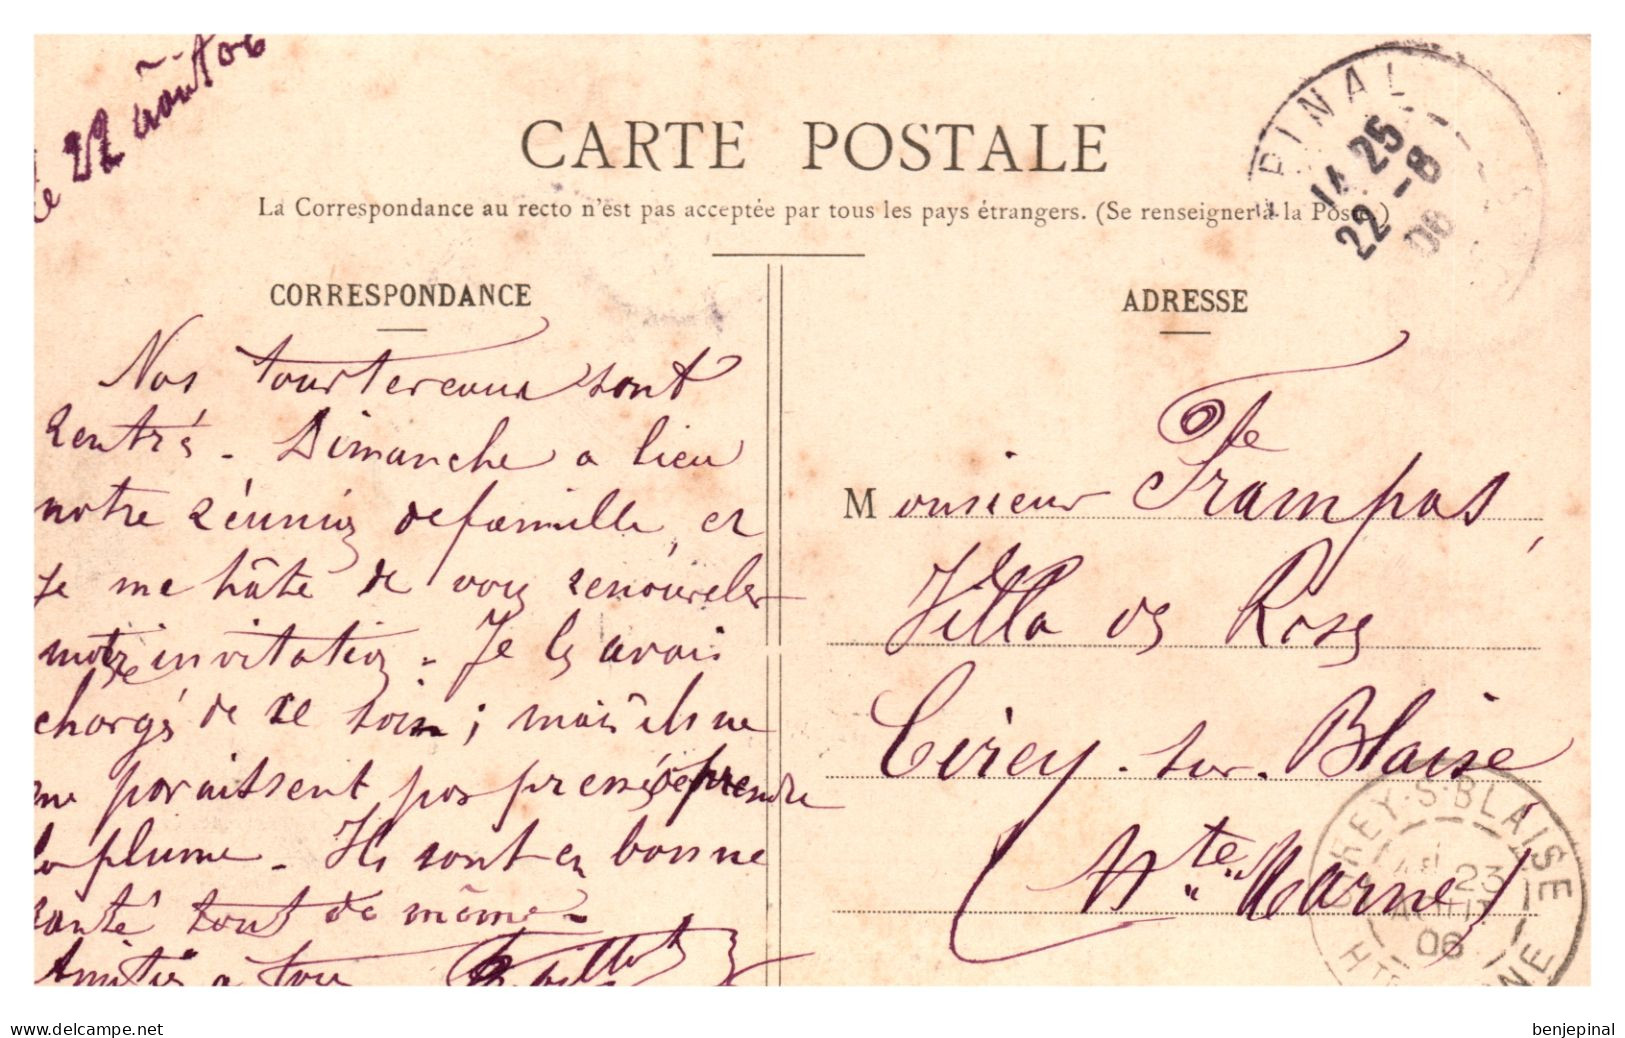 le 22 août 06
CARTE POSTALE
La Correspondance au recto n'est pas acceptée par tous les pays étrangers. (Se renseigner à la Poste)
EPINAL
14 25
22 -8
06
CORRESPONDANCE
Nos tourtereaux sont
rentrés - Dimanche a lieu
notre réunion de famille, et
je me hâte de vous renouveler
notre invitation - Je les avais
chargés de ce soin ; mais ils ne
me paraissent pas pressés de prendre
la plume - Ils sont en bonne
santé tout de même -
Amitiés à tous
ADRESSE
Monsieur Frampas,
Villa des Roses
Cirey-sur-Blaise
(Hte Marne)
CIREY-S-BLAISE
23
AOUT
06
HTE MARNE
delcampe.net
benjepinal